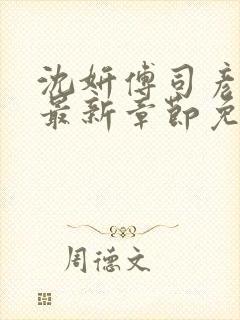 沈妍傅司彦
最新章节免
周德文